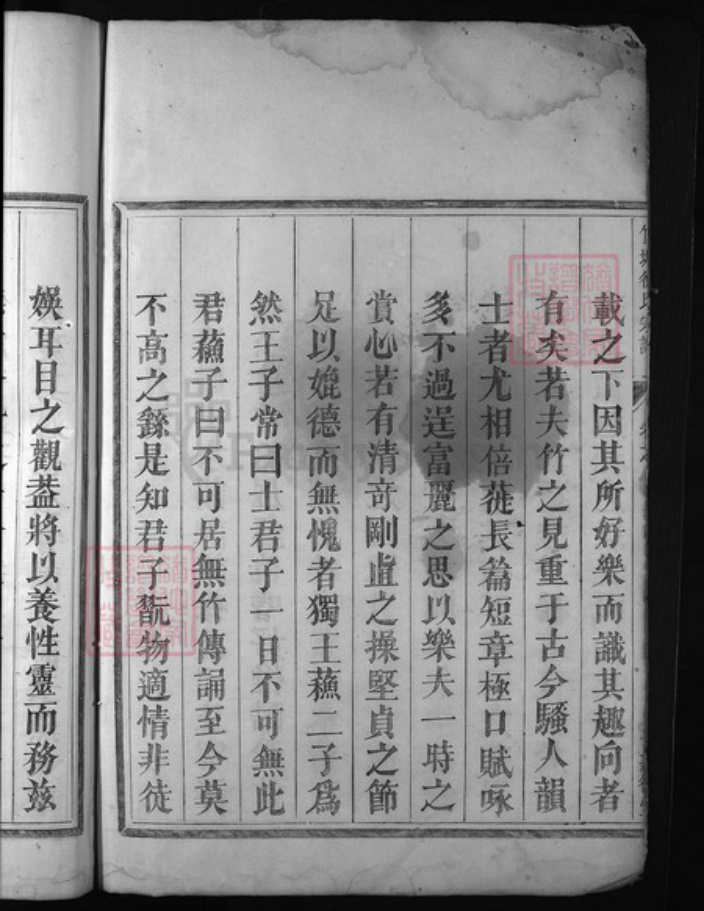 載之下因其所好樂而識其趣向者
有矣若夫竹之見重于古今騷人韻
士者尤相倍蓰長篇短章極口賦咏
多不過逞富麗之思以樂夫一時之
賞心若有清竒剛直之操堅貞之節
足以媲德而無愧者獨王蘓二子爲
然王子常曰士君子一日不可無此
君蘓子曰不可居無竹傳誦至今莫
不高之繇是知君子翫物適情非徒
娛耳目之觀葢將以養性靈而務兹